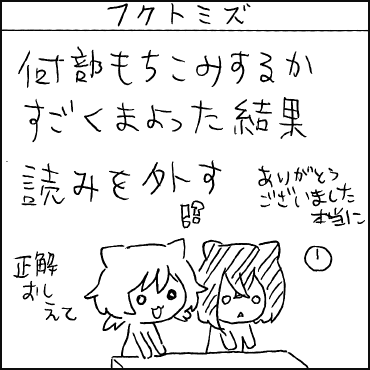 フクトミズ
何部もちこみするか
すごくまよった結果
読みを外す
ありがとう
ございました
本当に
正解
おしえて